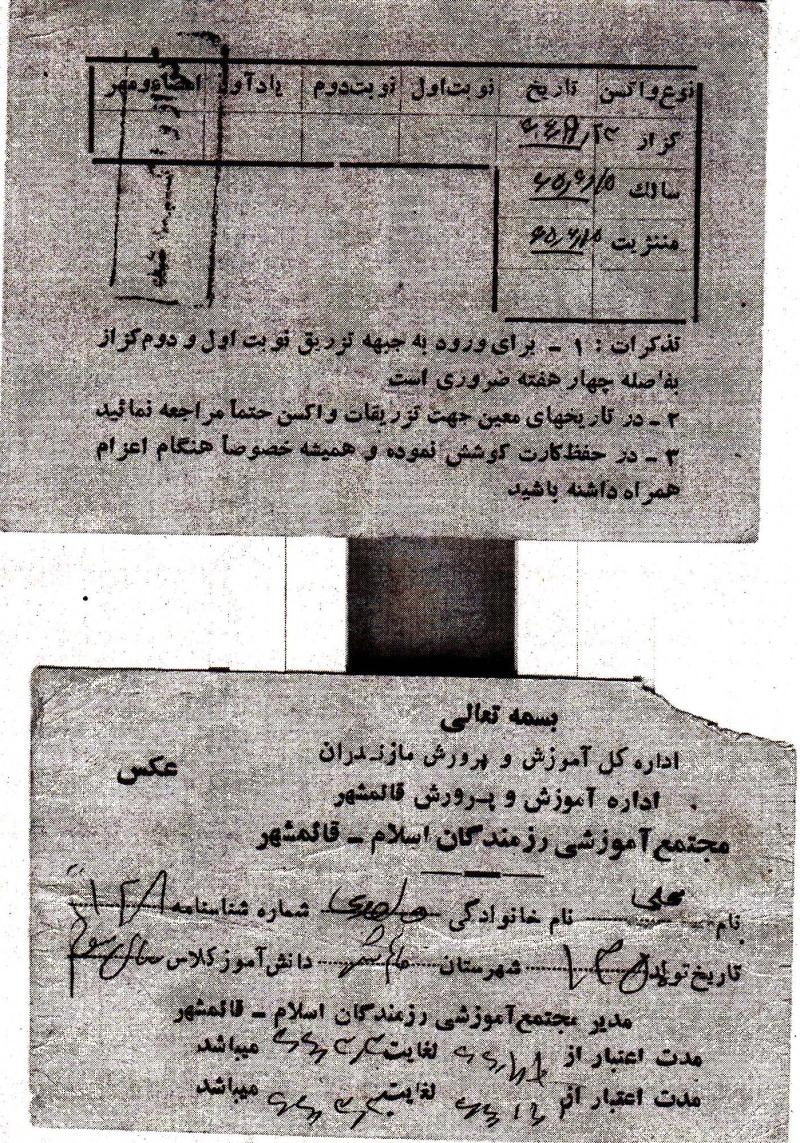 نوع واکسن تاریخ نوبت اول نوبت دوم یادآور امضاء و مهر
کزاز
سالك ۶۵٫۶٫۱۵
مننژیت ۶۵٫۶٫۱۵
تذکرات : ۱ ـ برای ورود به جبهه تزریق نوبت اول و دوم کزاز
بفاصله چهار هفته ضروری است
۲ ـ در تاریخهای معین جهت تزریقات واکسن حتماً مراجعه نمائید
۳ ـ در حفظ کارت کوشش نموده و همیشه خصوصاً هنگام اعزام
همراه داشته باشید
بسمه تعالی
اداره کل آموزش و پرورش مازندران
عکس
اداره آموزش و پرورش قائمشهر
مجتمع آموزشی رزمندگان اسلام ـ قائمشهر
نام علی نام خانوادگی شماره شناسنامه
تاریخ تولد شهرستان قائم شهر دانش آموز کلاس سال سوم
مدیر مجتمع آموزشی رزمندگان اسلام ـ قائمشهر
مدت اعتبار از لغایت میباشد
مدت اعتبار از لغایت میباشد